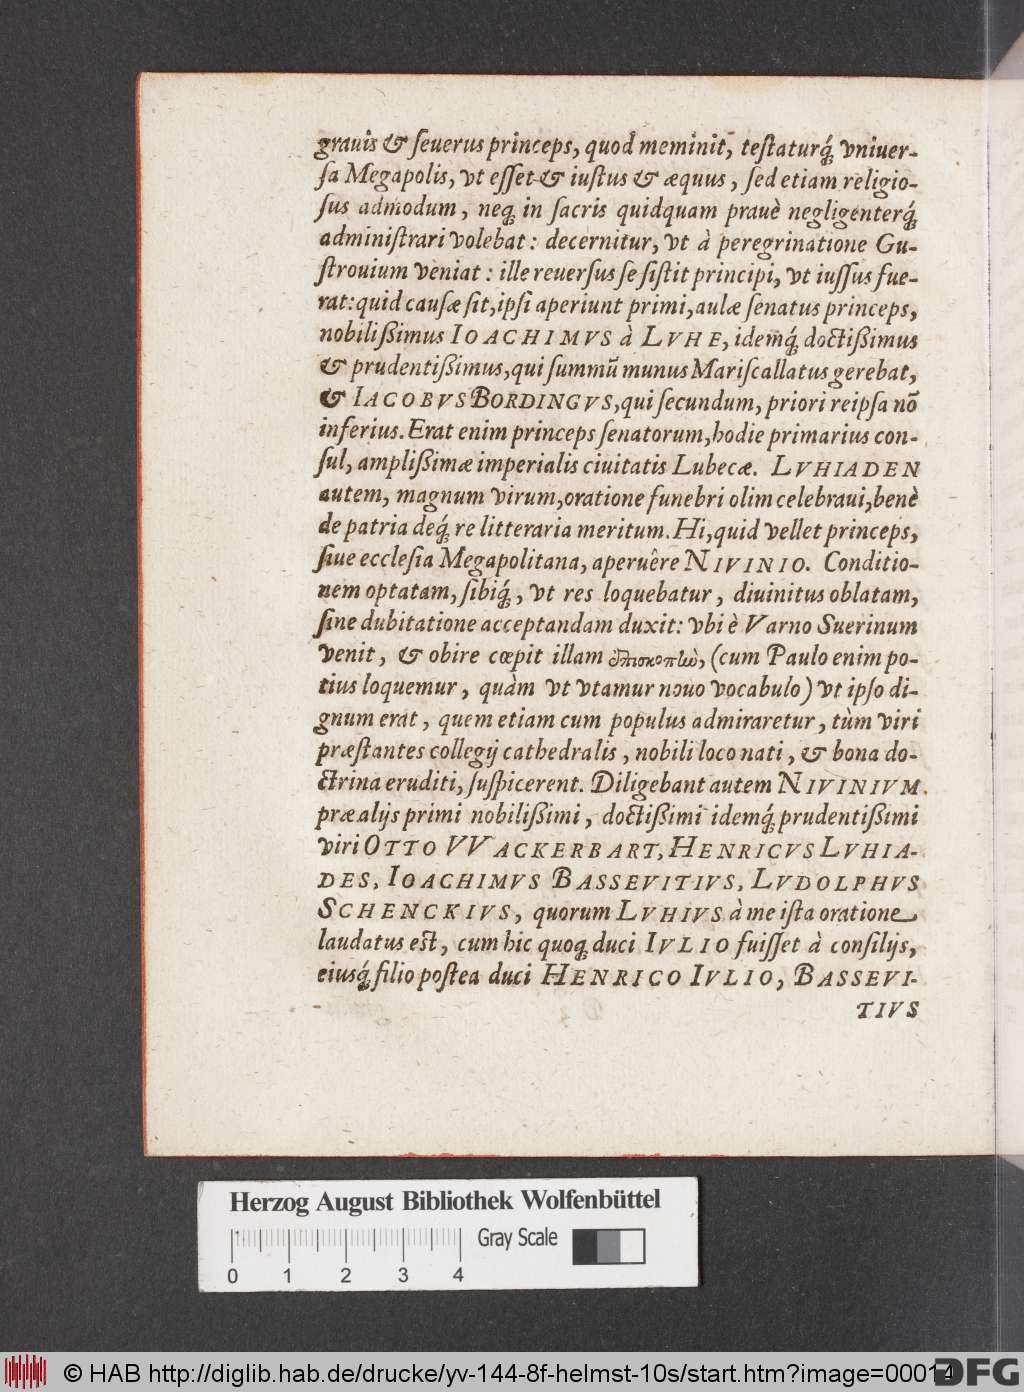 grauis & ſeuerus princeps, quod meminit, teſtaturq́; vniuer-
ſa Megapolis, vt eſſet & iuſtus & æquus, ſed etiam religio-
ſus admodum, neq; in ſacris quidquam prauè negligenterq́;
adminiſtrari volebat: decernitur, vt à peregrinatione Gu-
ſtrouium veniat: ille reuerſus ſe ſiſtit principi, vt iuſſus fue-
rat: quid cauſæ ſit, ipſi aperiunt primi, aulæ ſenatus princeps,
nobilißimus IOACHIMVS à LVHE, idemq́; doctißimus
& prudentißimus, qui ſummũ munus Mariſcallatus gerebat,
& IACOBVS BORDINGVS, qui ſecundum, priori reipſa nõ
inferius. Erat enim princeps ſenatorum, hodie primarius con-
ſul, amplißimæ imperialis ciuitatis Lubecæ. LVHIADEN
autem, magnum virum, oratione funebri olim celebraui, benè
de patria deq́; re litteraria meritum. Hi, quid vellet princeps,
ſiue eccleſia Megapolitana, aperuêre NIVINIO. Conditio-
nem optatam, ſibiq́;, vt res loquebatur, diuinitus oblatam,
ſine dubitatione acceptandam duxit: vbi è Varno Suerinum
venit, & obire cœpit illam ἐπισκοπὼ, (cum Paulo enim po-
tius loquemur, quàm vt vtamur nouo vocabulo) vt ipſo di-
gnum erat, quem etiam cum populus admiraretur, tùm viri
præſtantes collegij cathedralis, nobili loco nati, & bona do-
ctrina eruditi, ſuſpicerent. Diligebant autem NIVINIVM
præ alijs primi nobilißimi, doctißimi idemq́; prudentißimi
viri OTTO VVACKERBART, HENRICVS LVHIA-
DES, IOACHIMVS BASSEVITIVS, LVDOLPHVS
SCHENCKIVS, quorum LVHIVS à me iſta oratione
laudatus eſt, cum hic quoq; duci IVLIO fuiſſet à conſilijs,
eiusq́; filio poſtea duci HENRICO IVLIO, BASSEVI-
TIVS
Herzog August Bibliothek Wolfenbüttel
Gray Scale
0 1 2 3 4
© HAB http://diglib.hab.de/drucke/yv-144-8f-helmst-10s/start.htm?image=00014
DFG